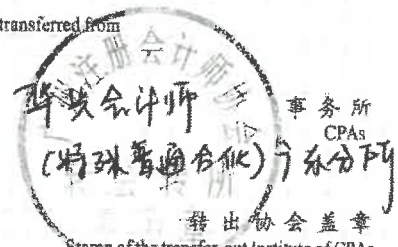 transferred from
华兴会计师
事务所
CPAs
(特殊普通合伙)广东分所
转出协会盖章
Stamp of the transfer-out Institute of CPAs